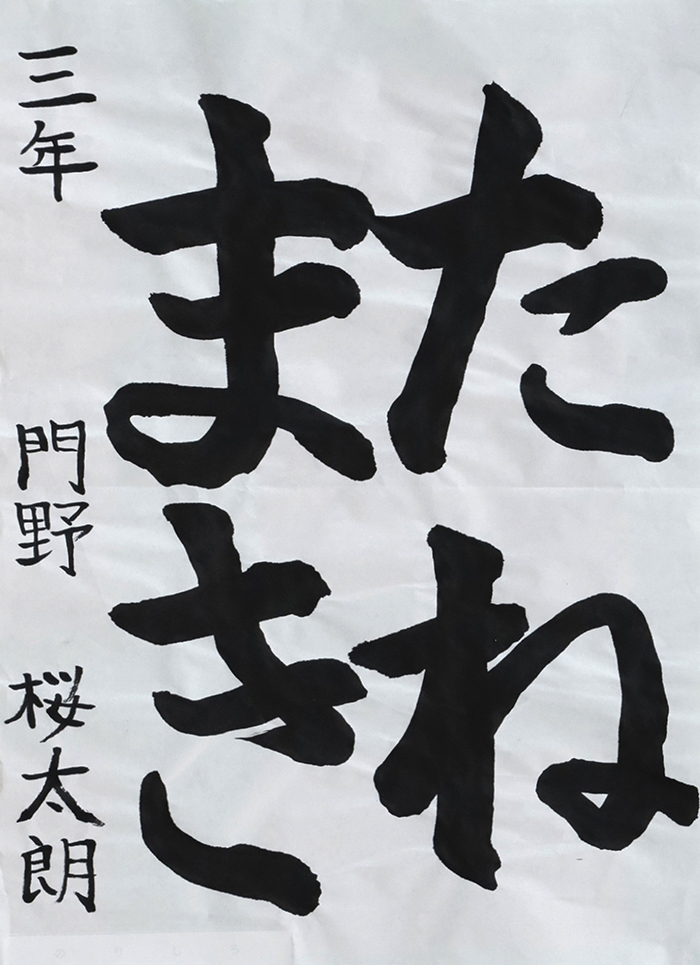 たね
まき
三年 門野 桜太朗